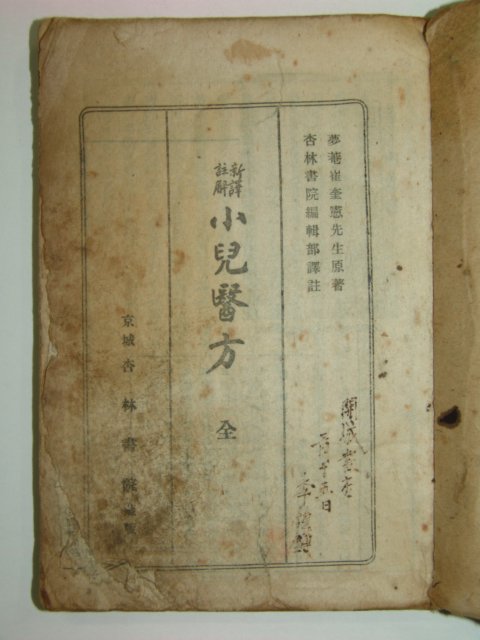 夢菴崔奎憲先生原著
杏林書院編輯部譯註
新譯
註解
小兒醫方 全
京城 杏林書院